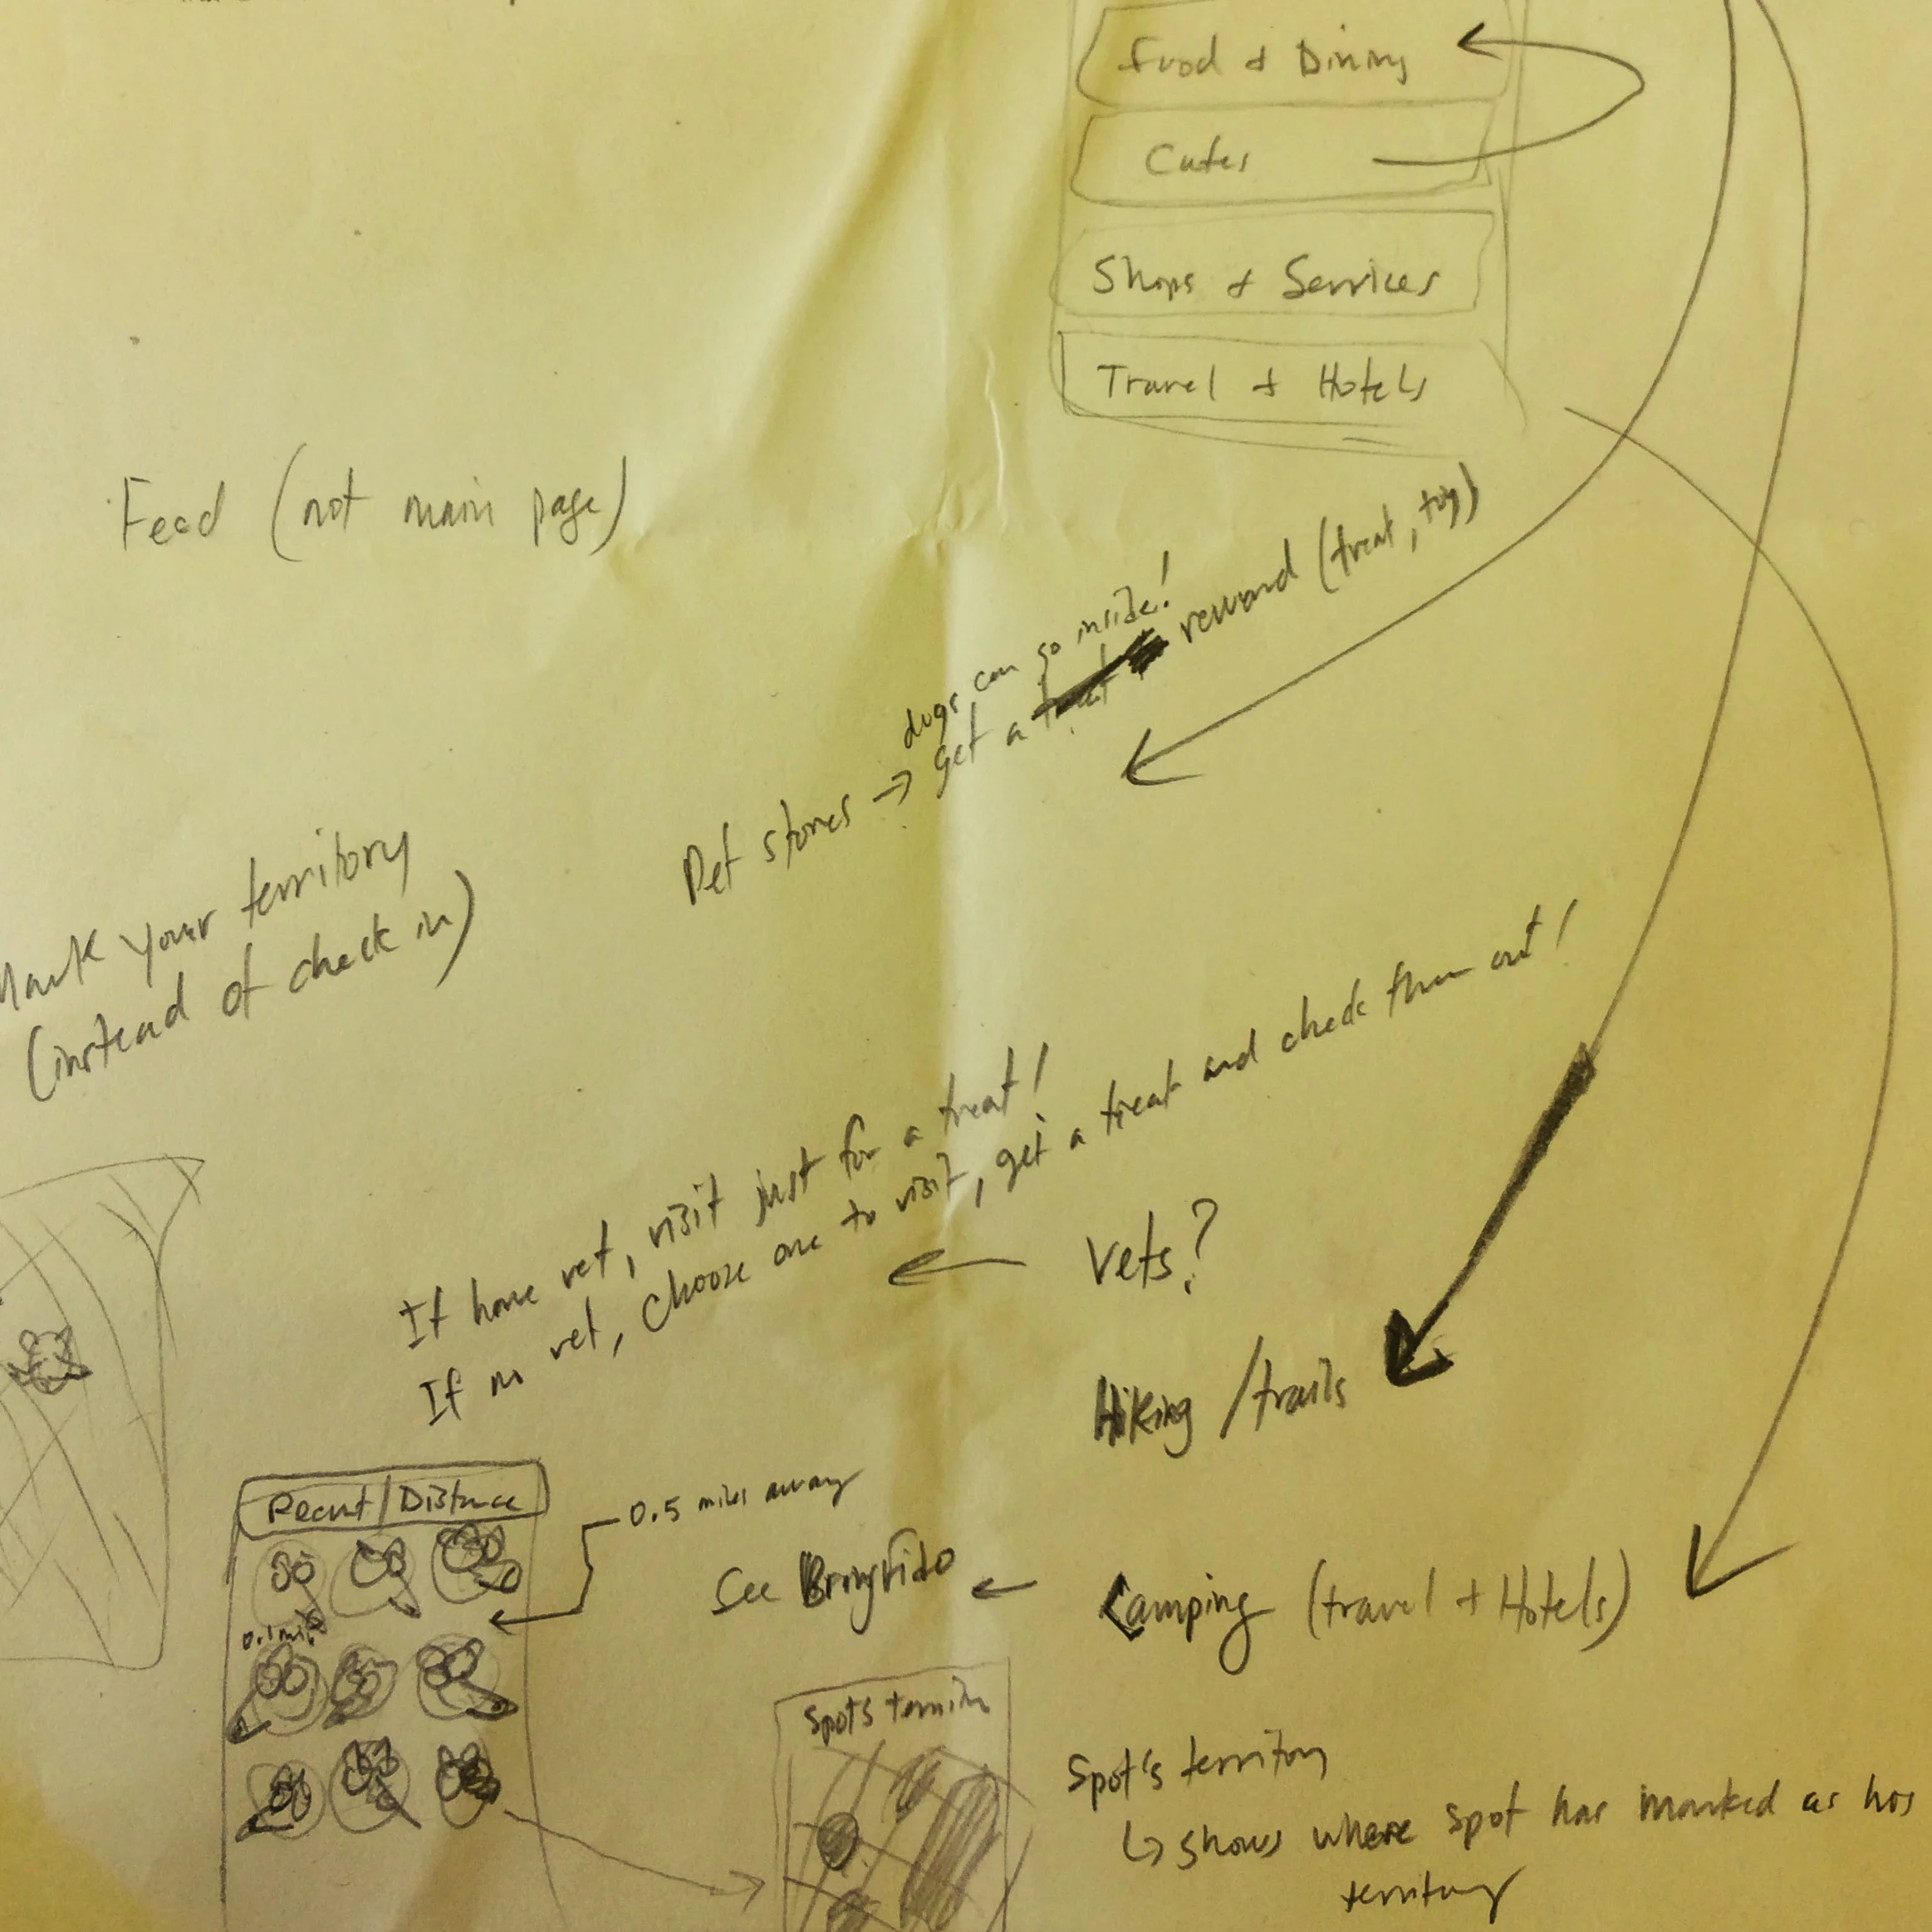 Food + Dining
Cafes
Shops + Services
Travel + Hotels
Feed (not main page)
dogs can go inside!
Pet stores → get a treat reward (treat, toy)
Mark your territory
(instead of check in)
If have vet, visit just for a treat!
If no vet, choose one to visit, get a treat and check them out!
Vets?
Hiking / trails
Recent / Distance
0.5 miles away
0.1 mi
See BringFido ← Camping (travel + Hotels)
Spot's
Spot's territory
↳ shows where spot has marked as his
territory